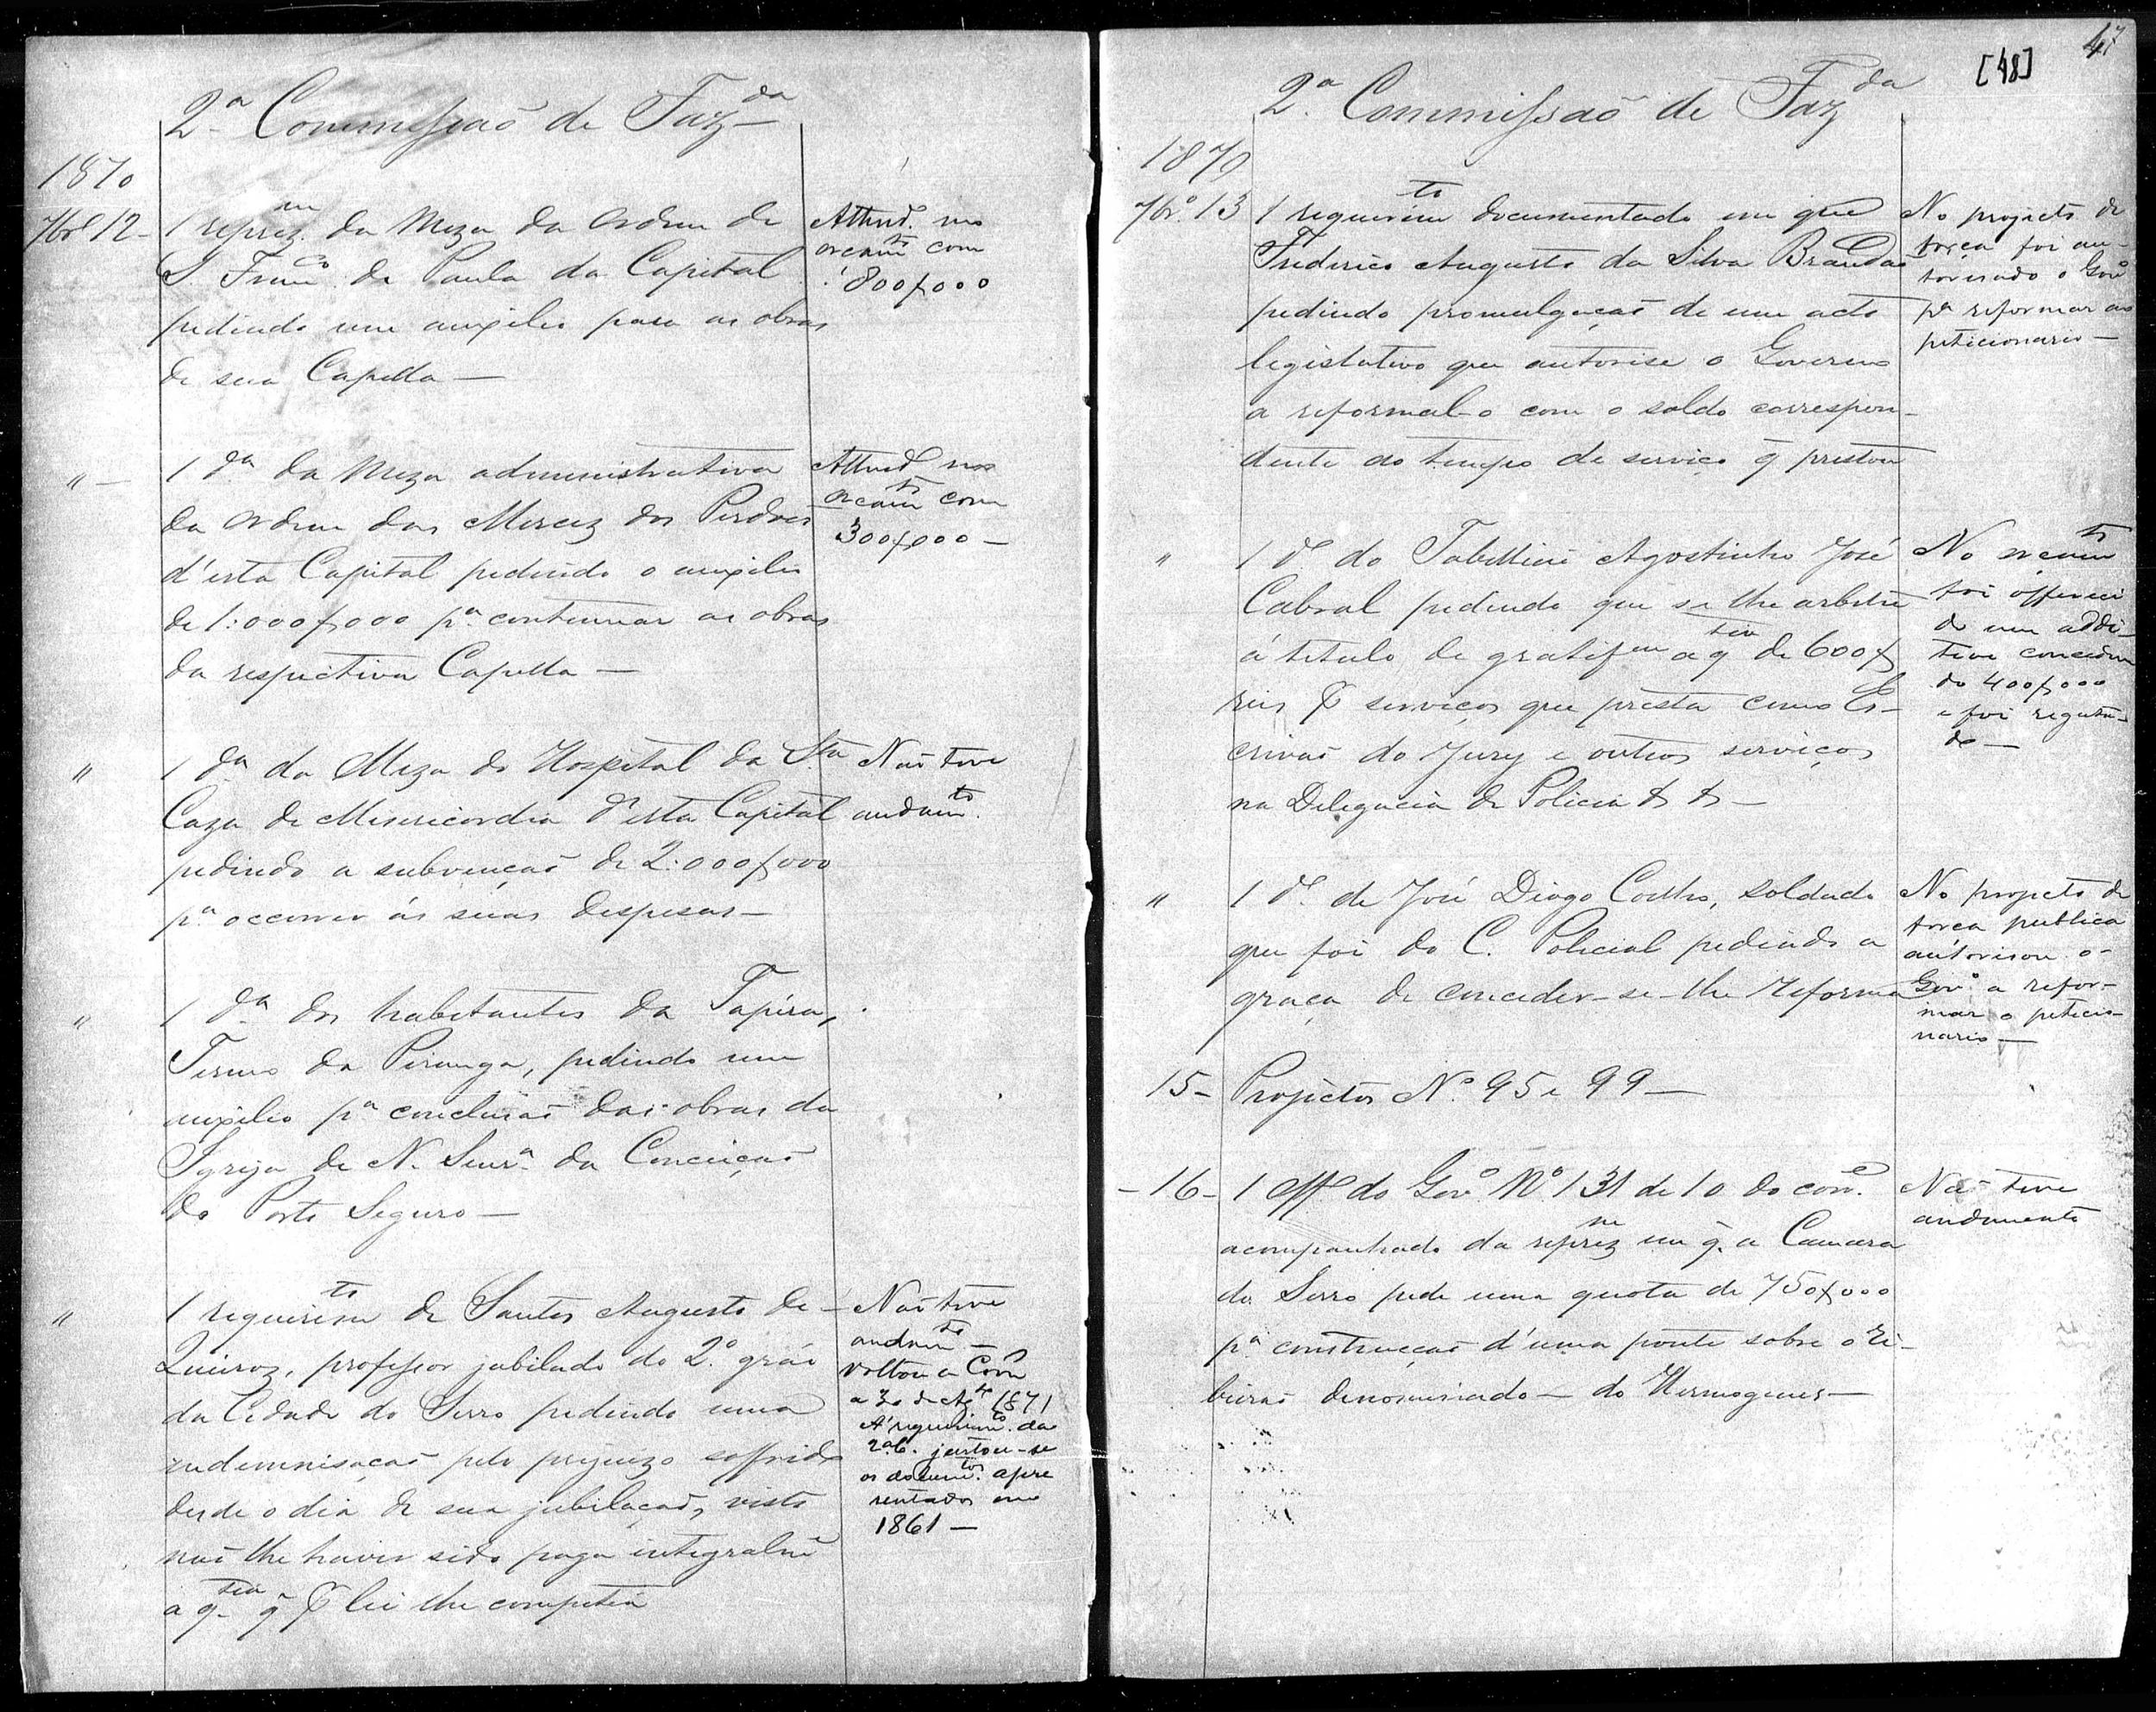 2.ª Commissão de Faz.da
1870
7br.º 12 -
1 reprez.m da Meza da Ordem de
S. Fran.co de Paula da Capital
pedindo um auxilio para as obras
de sua Capella —
Attend. no
orcam.to com
800$000
" -
1 d.ª da Meza administrativa
da Ordem das Mercez dos Perdões
d'esta Capital pedindo o auxilio
de 1:000$000 p.ª continuar as obras
da respectiva Capella —
Attend. nos
orcam.to com
300$000 —
"
1 d.ª da Meza do Hospital da S.ta
Caza de Misericordia d'esta Capital
pedindo a subvenção de 2:000$000
p.ª occorrer ás suas despesas —
Não teve
andam.to
"
1 d.ª dos habitantes da Tapéra,
Termo da Piranga, pedindo um
auxilio p.ª conclusão das obras da
Igreja de N. Senr.ª da Conceição
do Porto Seguro —
"
1 requerim.to de Santos Augusto de
Queiroz, professor jubilado do 2.º gráo
da Cidade do Serro pedindo uma
indemnisação pelo prejuizo soffrido
desde o dia de sua jubilação, visto
não lhe haver sido paga integralm.e
a q.tia q̃ p. lei lhe competia
Não teve
andam.to —
Voltou a Com.
a 30 de Ag.to 1871
A' requerim.to da
2.ª C. juntou-se
os docum.tos apre
sentados em
1861 —
47
[48]
2.ª Commissão de Faz.da
1870
7br.º 13
1 requerim.to documentado em que
Frederico Augusto da Silva Brandão
pedindo promulgação de um acto
legislativo que autorise o Governo
a reformal-o com o soldo correspon-
dente ao tempo de serviço q̃ prestou
No projecto de
força foi au-
torisado o Gov.º
p.ª reformar ao
peticionario —
"
1 d.º do Tabellião Agostinho José
Cabral pedindo que se lhe arbitre
á titulo de gratif.am a q.tia de 600$
reis p. serviços que presta como Es-
crivão do Jury e outros serviços
na Delegacia de Policia & & —
No orcam.to
foi offereci
do um addi-
tivo conceden
do 400$000
e foi regeita-
do —
"
1 d.º de José Diogo Coelho, soldado
que foi do C. Policial pedindo a
graça de conceder-se-lhe reforma
No projecto de
força publica
autorisou o
Gov.º a refor-
mar o peticio-
nario —
15 - Projectos N.º 95 e 99 —
- 16 - 1 off. do Gov.º N.º 131 de 10 do corr.e
acompanhado da reprez.m em q̃ a Camara
do Serro pede uma quota de 750$000
p.ª construcção d'uma ponte sobre o ri-
beirão denominado — do Hermogenes —
Não teve
andamento